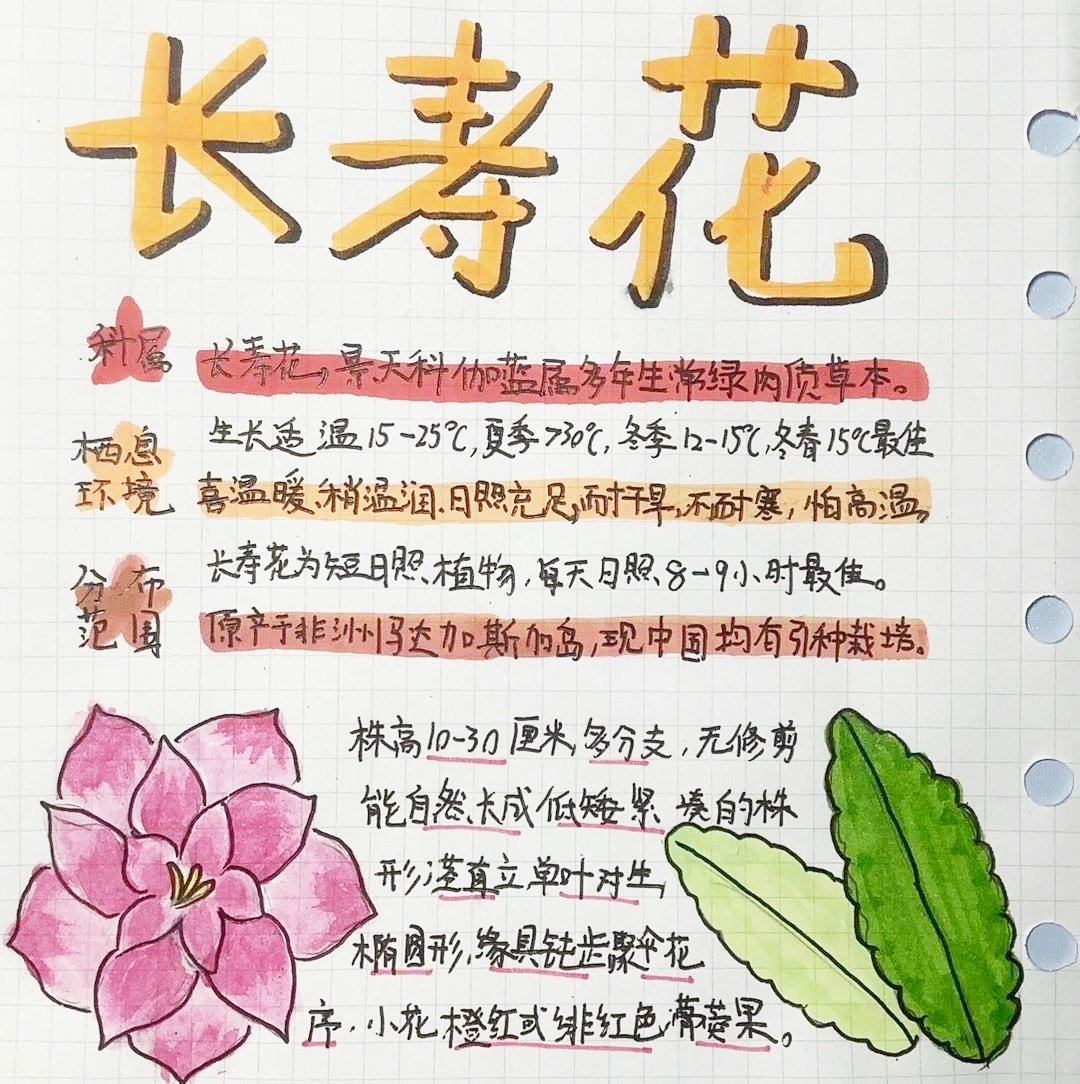 长寿花
科属
长寿花,景天科伽蓝属多年生常绿肉质草本。
栖息
环境
生长适温15-25℃,夏季>30℃,冬季12-15℃,冬春15℃最佳
喜温暖、稍温润、日照充足,耐干旱,不耐寒,怕高温。
分布
范围
长寿花为短日照植物,每天日照8-9小时最佳。
原产于非洲马达加斯加岛,现中国均有引种栽培。
株高10-30厘米,多分支,无修剪
能自然长成低矮紧凑的株
形,茎直立单叶对生,
椭圆形,缘具钝齿聚伞花
序,小花橙红或绯红色蓇葖果。